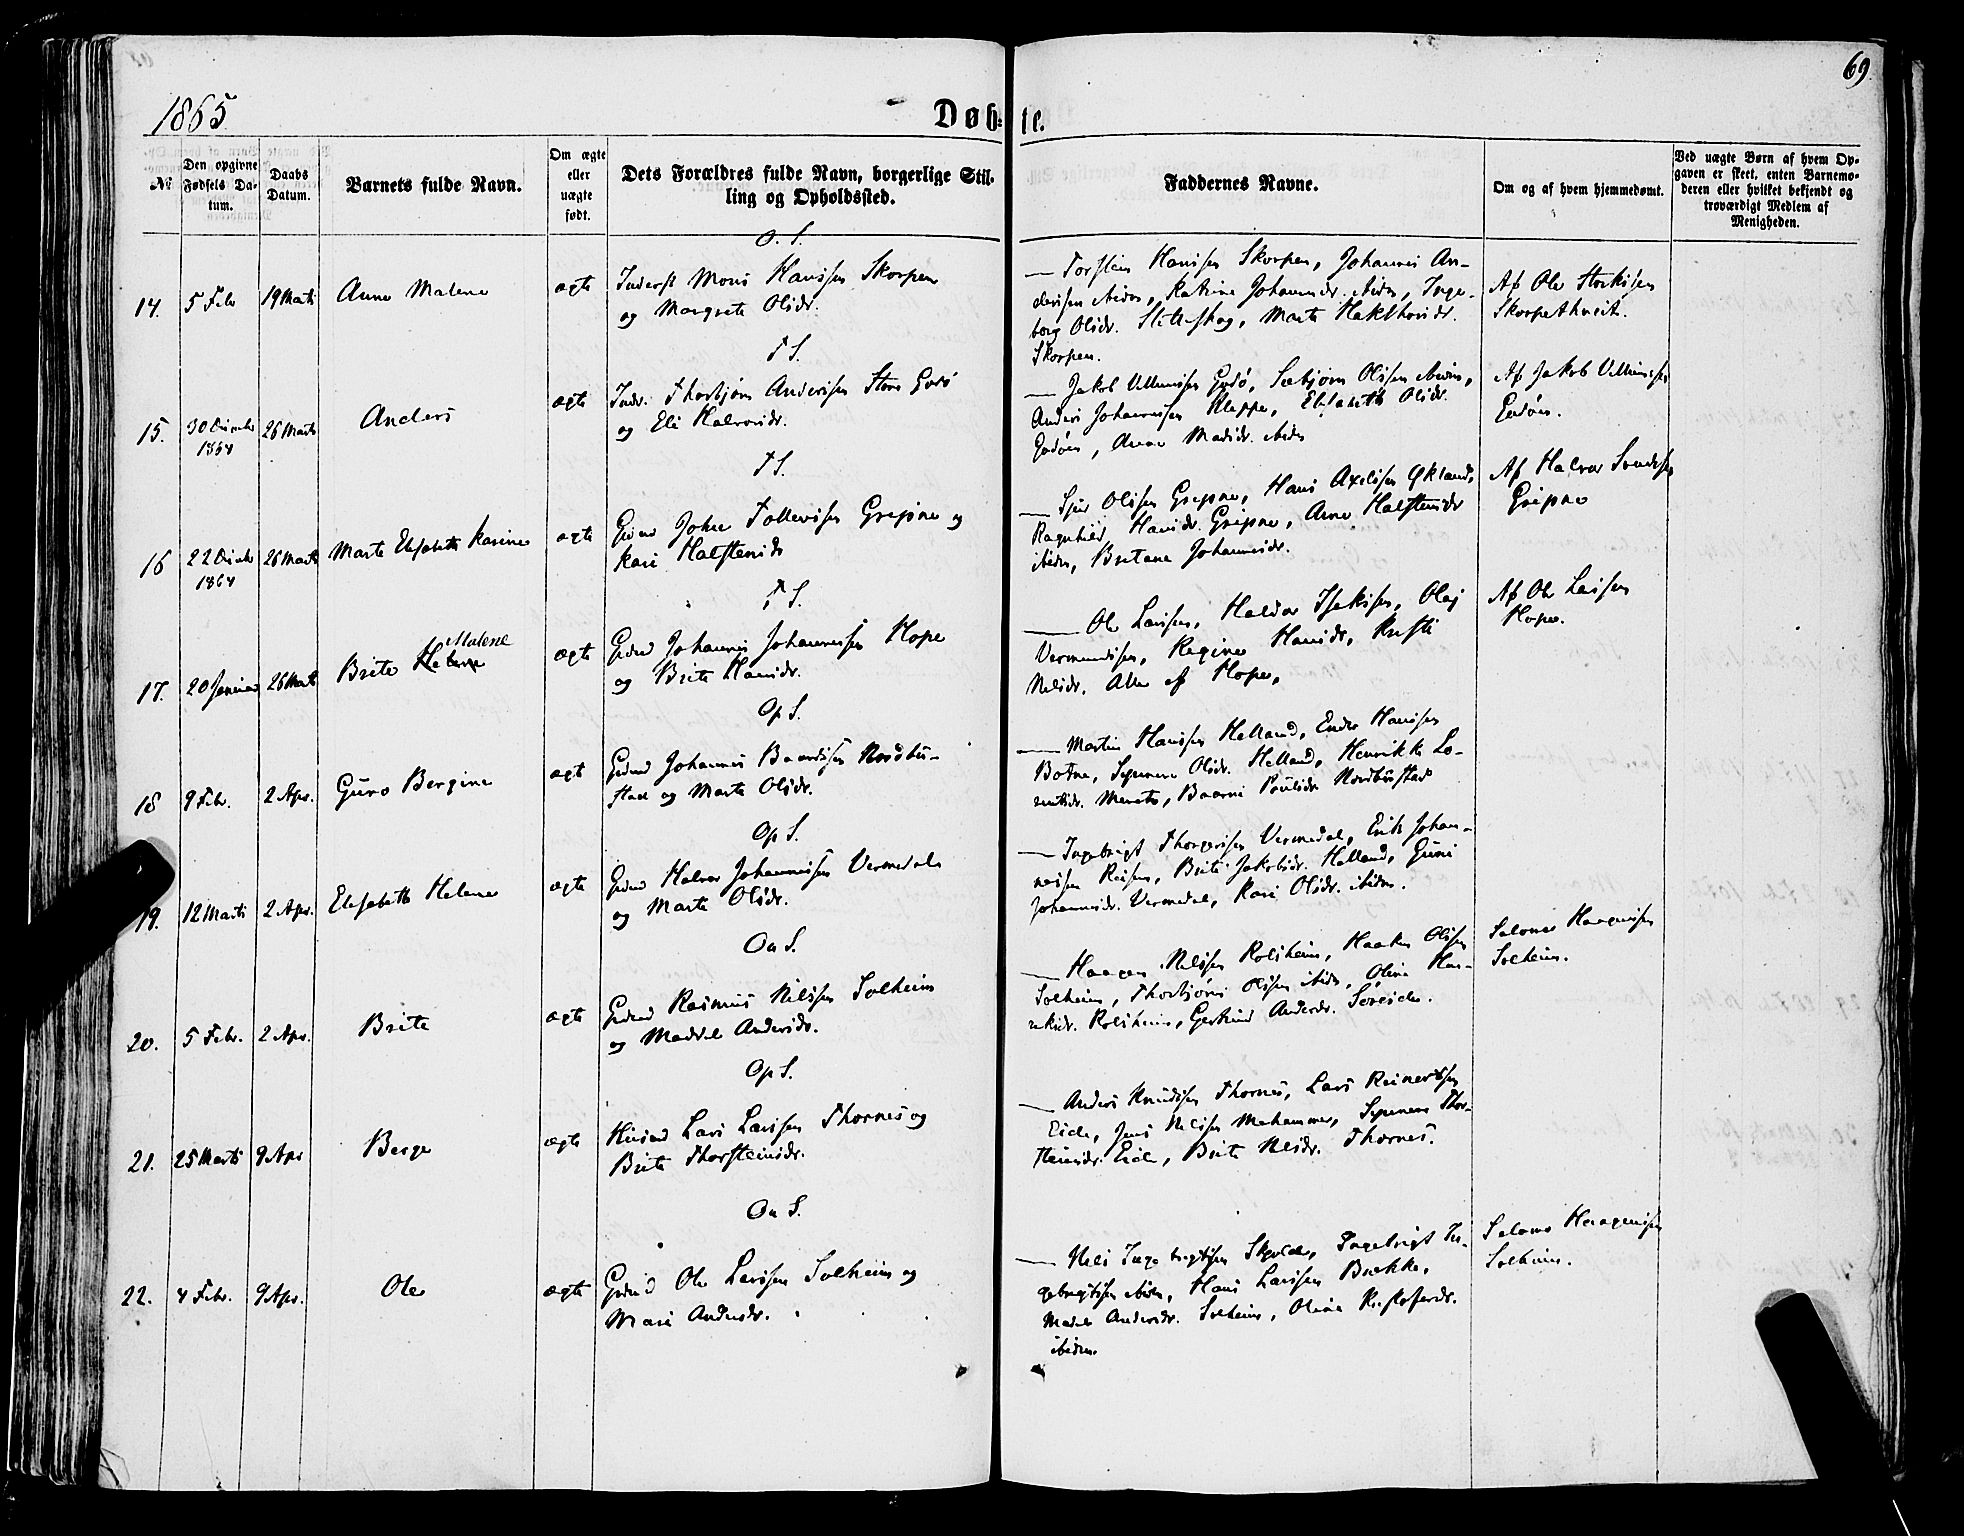 69
1865
Døb-te.
№
Den opgivne Fødsels Da-tum.
Daabs Datum.
Barnets fulde Navn.
Om ægte eller uægte født.
Dets Forældres fulde Navn, borgerlige Stil-ling og Opholdssted.
Faddernes Navne.
Om og af hvem hjemmedøbt.
Ved uægte Børn af hvem Op-gaven er skeet, enten Barnemo-deren eller hvilket bekjendt og troværdigt Medlem af Menigheden.
O. S.
14. 5 Febr 19 Marts Anne Malene ægte
Inderst Mons Hansen Skorpen
og Margrete Olsdr.
— Torstein Hansen Skorpen, Johannes An-
dersen ibidm, Katrine Johannesdr. ibidm, Inge-
borg Olsdr. Marta
Skorpen.
Af Ole
T S.
15. 30 Decmbr 1864 26 Marts Anders ægte
Indr. Thorbjørn Andersen Store Godø
og Eli Halvorsdr.
— Jakob Villumsen Godø, Sæbjørn Olsen ibidm,
Anders Johannessen Kleppe, Elisabeth Olsdr.
Godøen, Anne Madsdr. ibidm
Af Jakob Villumsen
Godøen.
T S.
16 22 Decmbr 1864 26 Marts Marte Elisabeth Karine ægte
Grdmd John Tollevsen Gripne og
Kari Halstensdr
— Sjur Olsen Gripne, Hans Axelsen Økland,
Ragnhild Hansdr. Gripne, Anne Halstensdr
ibidm, Britane Johannesdr.
Af Halvor Svendsen
Gripne
T S.
17. 20 Januar 26 Marts Brite Helene Malene ægte
Grdmd Johannes Johannessen Hope
og Brite Hansdr.
— Ole Larsen, Haldor Isaksen, Olaj
Vermundsen, Regine Hansdr, Kristi
Nilsdr. Alle af Hope.
Af Ole Larsen
Hope.
Op S.
18 9 Febr. 2 Apr. Guro Bergine ægt
Grdmd Johannes Baardsen Nordbu-
stad og Marte Olsdr.
— Martin Hansen Helland, Endre Hansen
Botne, Synneve Olsdr. Helland, Henrikke Lo-
rentsdr. Baarni Poulsdr Nordbustad
Op S.
19. 12 Marts 2 Apr. Elisabeth Helene ægte
Grdmd Halvor Johannessen Vermedal
og Marte Olsdr.
— Ingebrigt Thorgersen Vermedal, Erik Johan-
nessen Reisen, Brite Jakobsdr. Helland, Guni
Johannesdr. Vermedal, Kari Olsdr. ibidm.
On S.
20. 5 Febr. 2 Apr. Brite ægte
Grdmd Rasmus Nilsen Solheim
og Maddel Andersdr.
— Haagen Nilsen Rolsheim, Haaken Olsen
Solheim, Thorbjørn Olsen ibidm, Oline Hen-
riksdr. Rolsheim, Gertrud Andersdr. Søreide.
Salomo Haagensen
Solheim.
Op S.
21. 25 Marts 9 Apr Berge ægte
Husmd Lars Larsen Thornes og
Brite Thorsteinsdr.
— Anders Knudsen Thornes, Lars Reinertsen
Eide, Jens Nilsen Mehammer, Synneve Thor-
steinsdr. Eide, Brite Nilsdr. Thornes.
On S.
22. 4 Febr. 9 Apr. Ole ægte
Grdmd Ole Larsen Solheim og
Mari Andersdr.
— Nils Ingebrigtsen Skjolde, Ingebrigt In-
gebrigtsen ibidm, Hans Larsen Brekke,
Madel Andersdr. Solheim, Oline Kristofersdr.
ibidm.
Salomo Haagensen
Solheim.